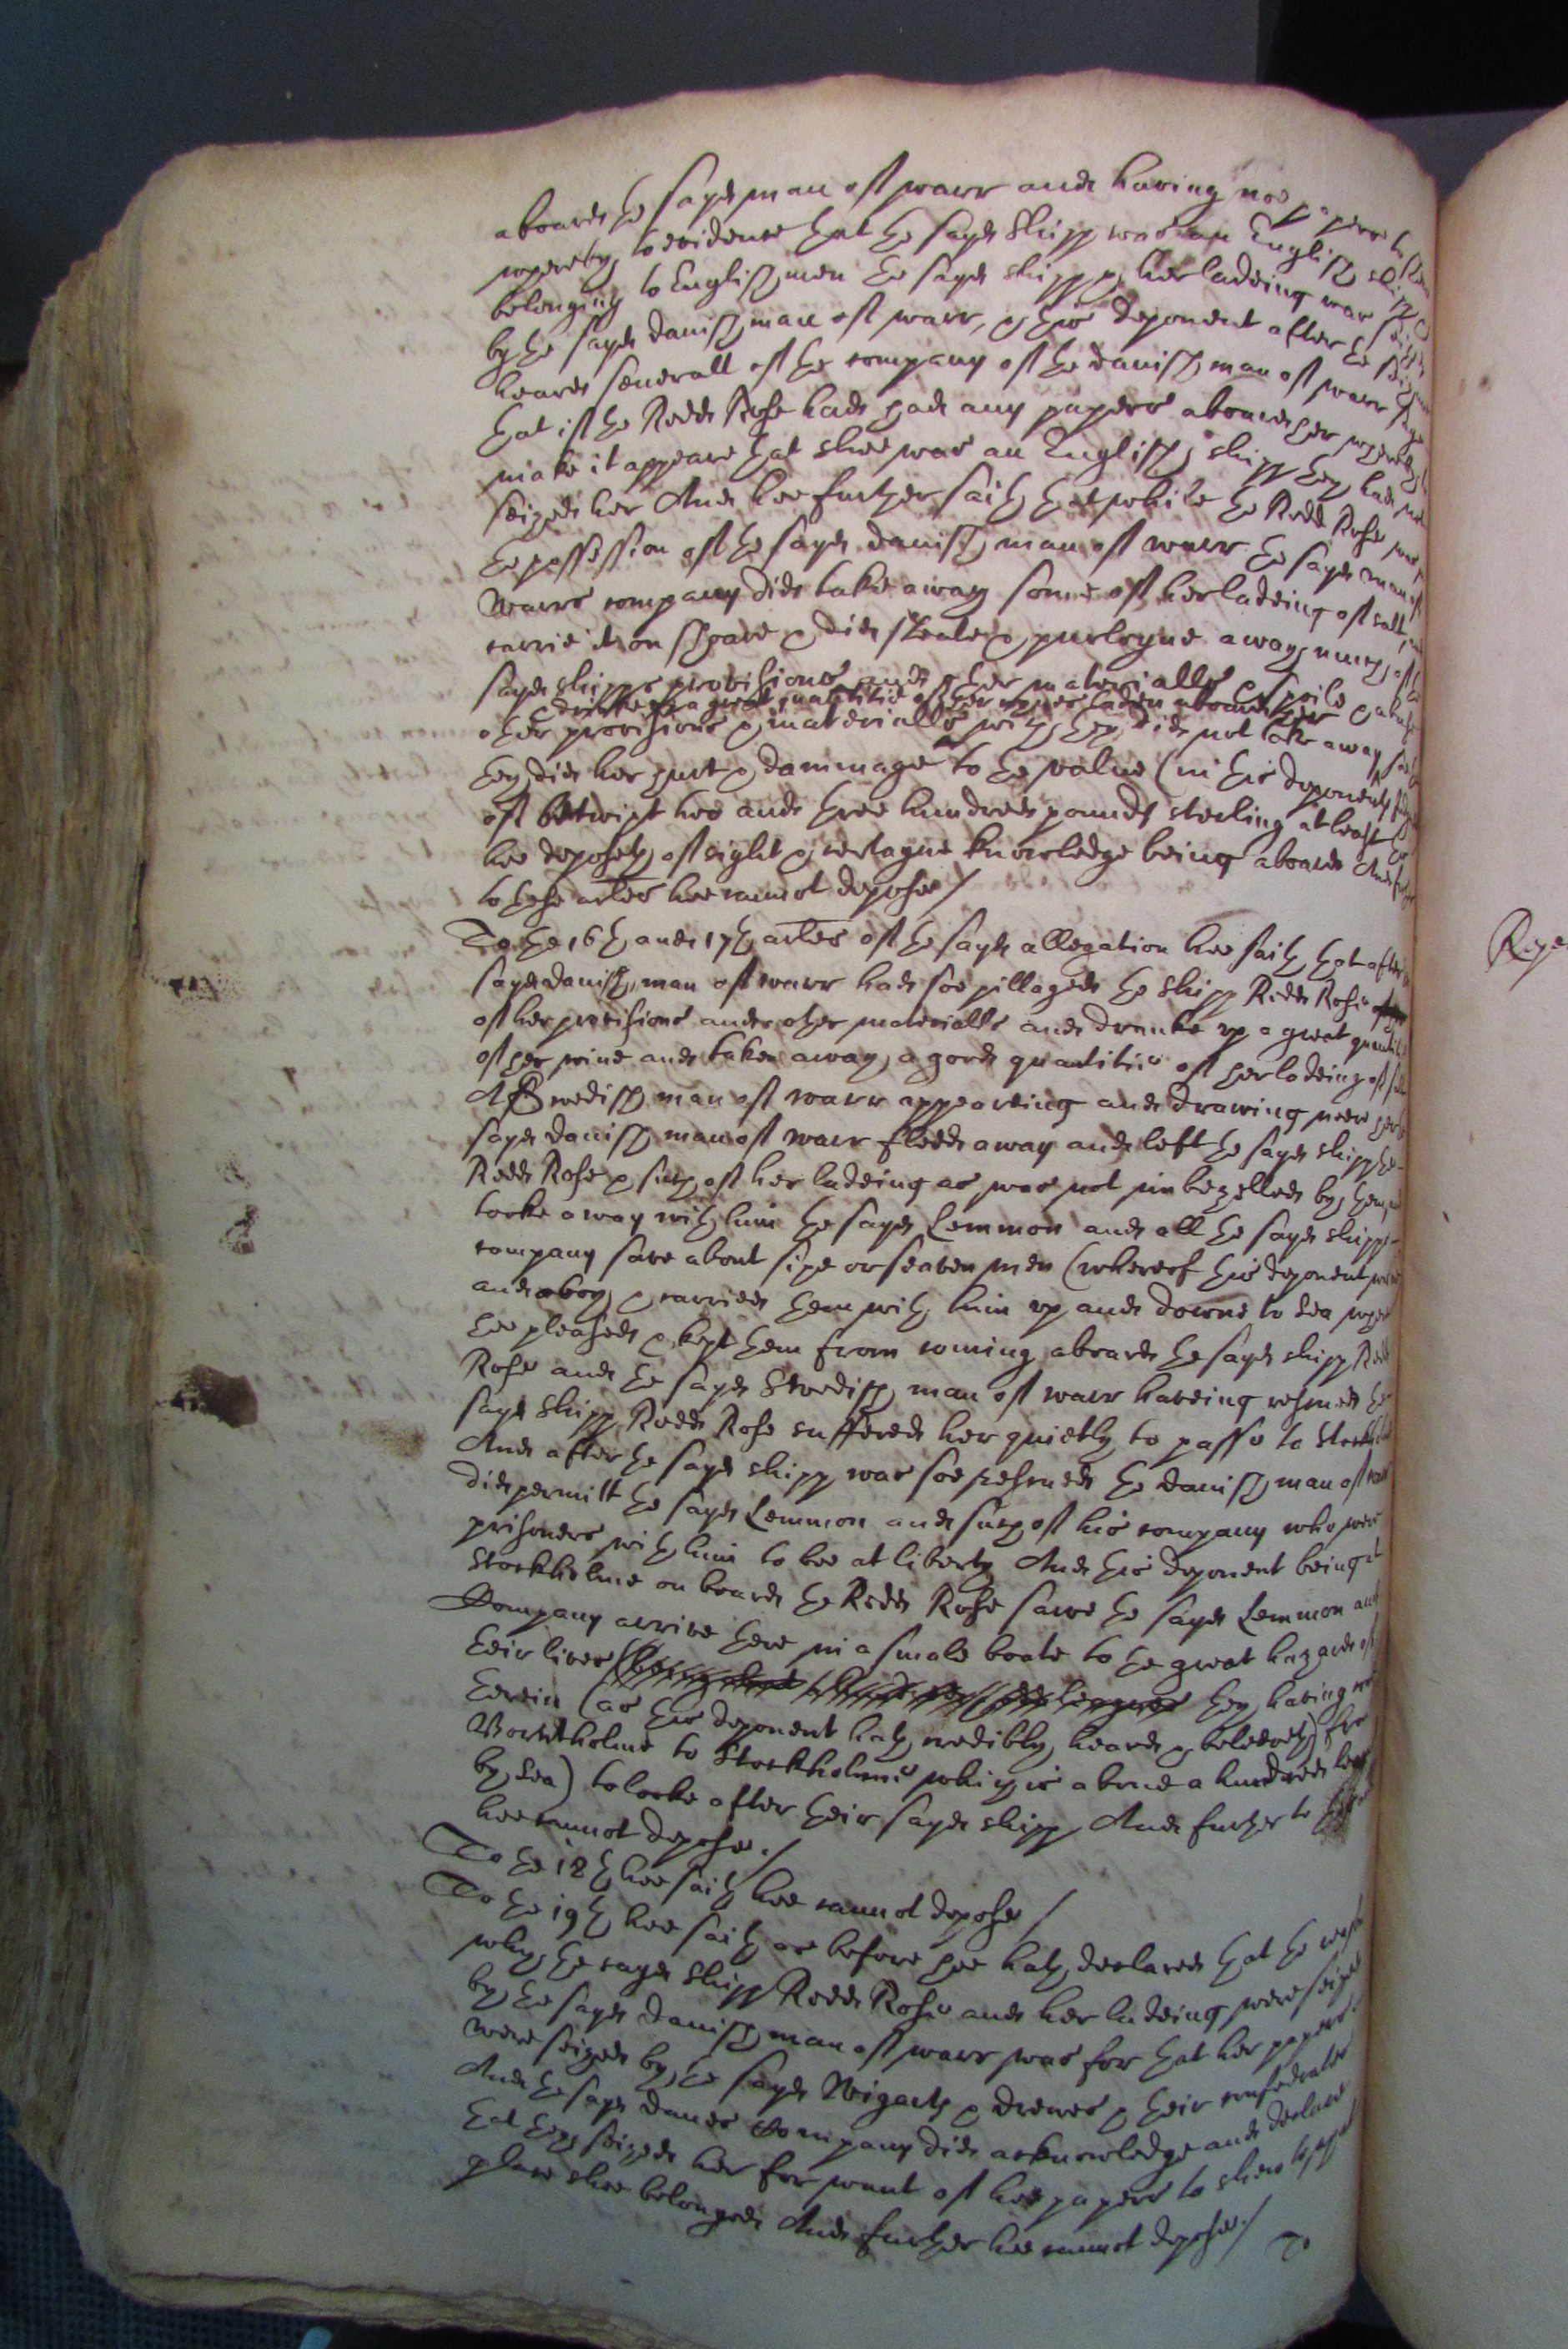 aboard the sayd man of warr and having noe papers to shew
whereby to evidence that the sayd shipp was an English shipp &
belonging to English men the sayd shipp & her ladeing was seized
by the sayd danish man of warr, & this deponent after the seizure
heard severall of the company of the danish man of warr saye
that if the Redd Rose had had any papers aboard her whereby to
make it appeare that shee was an English shipp they had not
seized her And hee further saith that while the Redd Rose was in
the possession of the sayd danish man of warr the sayd man of
Warrs company did take away some of her ladeing of salt, and
carrie it on shoare & did steale & purloyne away much of the
sayd shipps provisions and other materialls & spoile & abuse
& drinke up a great quantitie of her wynes laden aboard her
other provisions & materialls which they did not take away soe
they did her hurt & dammage to the value (in this deponents
of betwixt two and three hundred pounds sterling at least
hee deposeth of sight & certayne knowledge being aboard And further
to these articles hee cannot depose /
To the 16th and 17th articles of the sayd allegation hee saith that after the
sayd danish man of warr had soe pillaged the shipp Redd Rose
of her provisions and other materialls and drunke up a great quantitie
of her wine and taken away a good quantitie of her ladeing of salt
A Swedish man of warr appeareing and drawing neere her the
sayd danish man of warr fledd away and left the sayd shipp the
Redd Rose & such of her ladeing as was not imbezelled by them, and
tooke away with him the sayd Lemmon and all the sayd shipps
company save about sixe or seaven men (whereof this deponent was one
and a boy & carried them with him up and downe to Sea where
hee pleased & kept them from coming aboard the sayd shipp Redd
Rose and the sayd Swedish man of warr haveing rescued the
sayd shipp Redd Rose suffered her quietly to passe to Stockholme
And after the sayd shipp was soe rescued the danish man of warr
did permitt the sayd Lemmon and such of his company who were
prisoners with him to bee at liberty And this deponent being at
Stockholme on board the Redd Rose sawe the sayd Lemmon and
Company arrive there in a smale boate to the great hazard of
their lives they having
therein (as this deponent hath credibly heard & beleeveth) from
Bornholme to Stockholme which is above a hundred leagues
by Sea) to looke after their sayd shipp And further to
hee cannot depose. /
To the 18th hee saith hee cannot depose /
To the 19th hee saith as before hee hath declared that the reason
why the sayd shipp Redd Rose and her ladeing were seized
by the sayd danish man of warr was for that her papers
were seized by the sayd Wigarts & Drewes & their confederates
And the sayd danes Company did acknowledge and declare
that they seized her for want of her papers to shew to what
place shee belonged And further hee cannot depose. /
To